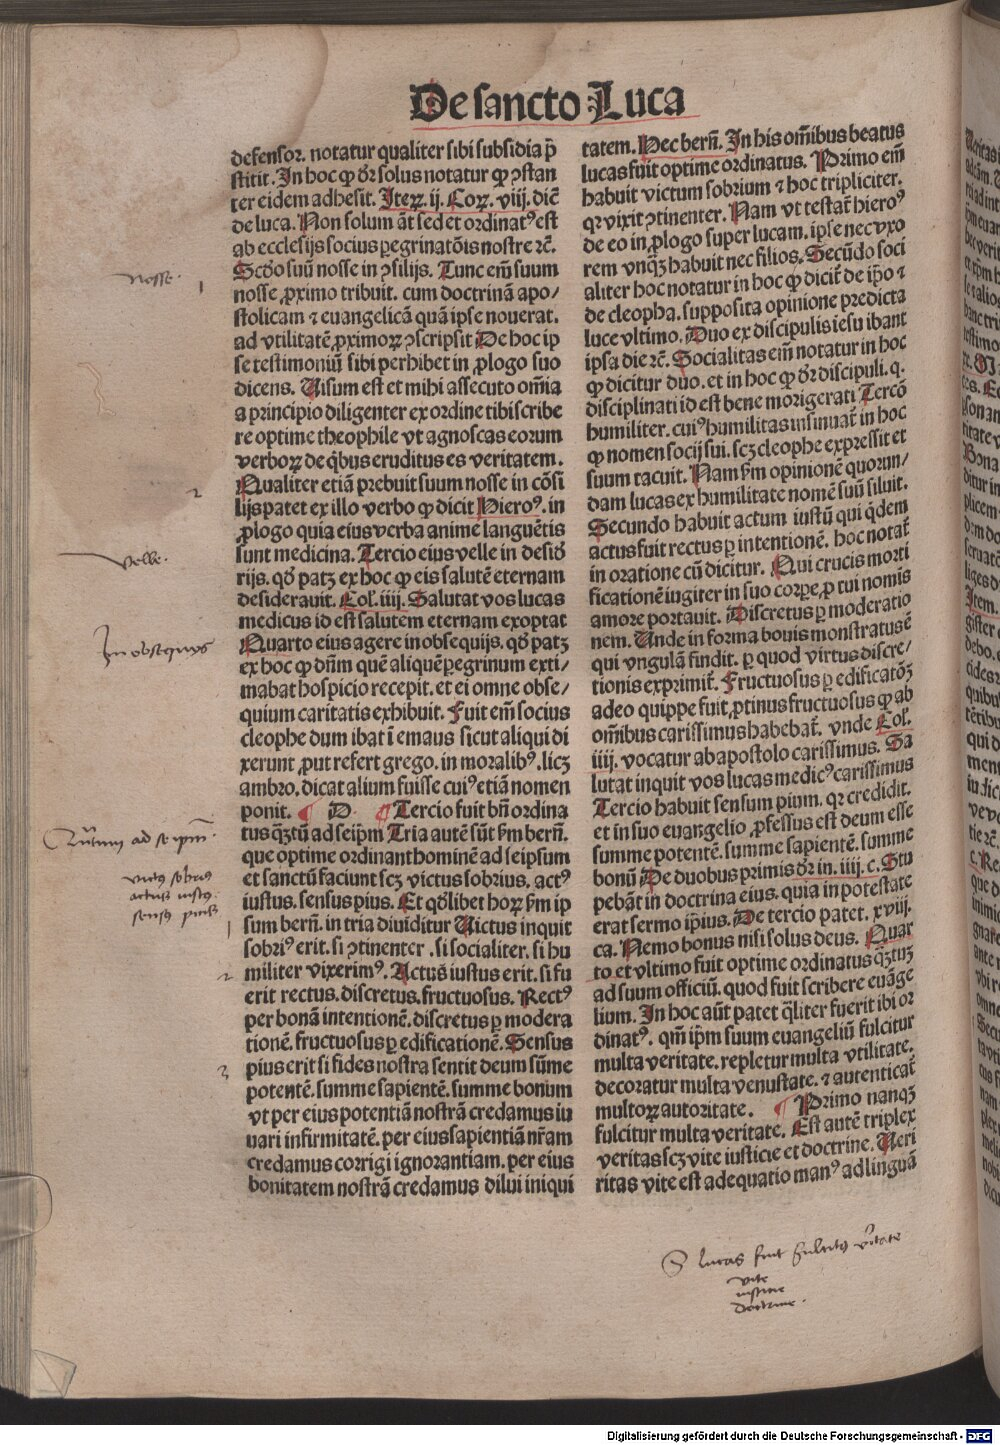 De sancto Luca
defensor. notatur qualiter sibi subsidia p̄
stitit. In hoc ꝙ dr̄ solus notatur ꝙ ꝯstan
ter eidem adhesit. Iteꝝ. ij. Coꝝ. viij. dic̄
de luca. Non solum āt sed et ordinatꝰ est
ab ecclesijs socius ꝑegrinatōis nostre ꝛc̄.
Scd̄o suū nosse in ꝯsilijs. Tunc em̄ suum
nosse ꝓximo tribuit. cum doctrinā apo/
stolicam ⁊ euangelicā quā ipse nouerat.
ad vtilitatē ꝓximoꝝ ꝯscripsit De hoc ip
se testimoniū sibi perhibet in ꝓlogo suo
dicens. Uisum est et mihi assecuto om̄ia
a principio diligenter ex ordine tibi scribe
re optime theophile vt agnoscas eorum
verboꝝ de q̄bus eruditus es veritatem.
Qualiter etiā prebuit suum nosse in cōsi
lijs patet ex illo verbo ꝙ dicit Hieroꝰ. in
ꝓlogo quia eius verba anime languētis
sunt medicina. Tercio eius velle in desid̄
rijs. qd̄ patꝫ ex hoc ꝙ eis salutē eternam
desiderauit. Col̄. iiij. Salutat vos lucas
medicus id est salutem eternam exoptat
Quarto eius agere in obsequijs. qd̄ patꝫ
ex hoc ꝙ dn̄m quē aliquē ꝑegrinum exti/
mabat hospicio recepit. et ei omne obse/
quium caritatis exhibuit. Fuit em̄ socius
cleophe dum ibat ī emaus sicut aliqui di
xerunt ꝓut refert grego. in moralibꝰ. licꝫ
ambro. dicat alium fuisse cuiꝰ etiā nomen
ponit. ¶ D ¶ Tercio fuit bn̄ ordina
tus qꝫtū ad seip̄m Tria autē sūt ẜm bern̄.
que optime ordinant hominē ad seipsum
et sanctū faciunt scꝫ victus sobrius. actꝰ
iustus. sensus pius. Et qd̄libet hoꝝ ẜm ip
sum bern̄. in tria diuiditur Uictus inquit
sobriꝰ erit. si ꝯtinenter. si socialiter. si hu
militer vixerimꝰ. Actus iustus erit. si fu
erit rectus. discretus. fructuosus. Rectꝰ
per bonā intentionē. discretus ꝑ modera
tionē. fructuosus ꝑ edificationē. Sensus
pius erit si fides nostra sentit deum sūme
potentē. summe sapientē. summe bonum
vt per eius potentiā nostrā credamus iu
uari infirmitatē. per eius sapientiā nr̄am
credamus corrigi ignorantiam. per eius
bonitatem nostrā credamus dilui iniqui
tatem. Hec bern̄. In his om̄ibus beatus
lucas fuit optime ordinatus. Primo em̄
habuit victum sobrium ⁊ hoc tripliciter.
qꝛ vixit ꝯtinenter. Nam vt testat̄ hieroꝰ
de eo in ꝓlogo super lucam. ipse nec vxo
rem vnqꝫ habuit nec filios. Secūdo soci
aliter hoc notatur in hoc ꝙ dicit̄ de ip̄o ⁊
de cleopha. supposita opinione predicta
luce vltimo. Duo ex discipulis iesu ibant
ipsa die ꝛc̄. Socialitas em̄ notatur in hoc
ꝙ dicitur duo. et in hoc ꝙ dr̄ discipuli. q.
disciplinati id est bene morigerati Tercō
humiliter. cuiꝰ humilitas insinuat̄ in hoc
ꝙ nomen socij sui. scꝫ cleophe expressit et
suum tacuit. Nam ẜm opinionē quorun/
dam lucas ex humilitate nomē suū siluit.
Secundo habuit actum iustū qui q̄dem
actus fuit rectus ꝑ intentionē. hoc notat̄
in oratione cū dicitur. Qui crucis morti
ficationē iugiter in suo corꝑe ꝓ tui nomīs
amore portauit. Discretus ꝑ moderatio
nem. Unde in forma bouis monstratus ē
qui vngulā findit. per quod virtus discre/
tionis exprimit̄. Fructuosus ꝑ edificatōꝫ
adeo quippe fuit ꝓtinus fructuosus ꝙ ab
om̄ibus carissimus habebat̄. vnde Col̄.
iiij. vocatur ab apostolo carissimus. Sa
lutat inquit vos lucas medicꝰ carissimus
Tercio habuit sensum pium. qꝛ credidit.
et in suo euangelio ꝓfessus est deum esse
summe potentē. summe sapientē. summe
bonū De duobus primis dr̄ in. iiij. c. Stu
pebāt in doctrina eius. quia in potestate
erat sermo ip̄ius. De tercio patet. xviij.
ca. Nemo bonus nisi solus deus. Quar
to et vltimo fuit optime ordinatus qꝫtuꝫ
ad suum officiū. quod fuit scribere euāge
lium. In hoc aūt patet q̄liter fuerit ibi or
dinatꝰ. qm̄ ip̄m suum euangeliū fulcitur
multa veritate. repletur multa vtilitate.
decoratur multa venustate. ⁊ autenticat̄
multoꝝ autoritate. ¶ Primo nanqꝫ
fulcitur multa veritate. Est autē triplex
veritas scꝫ vite iusticie et doctrine. Ueri
ritas vite est adequatio manꝰ ad linguā
nosse.
1
2
velle.
In obsequijs
ad seipm̄.
victus sobrius
actus iustus
sensus pius
1
2
3
lucas fuit fulcitus veritate
vite
iusticie
doctrine.
Digitalisierung gefördert durch die Deutsche Forschungsgemeinschaft - DFG